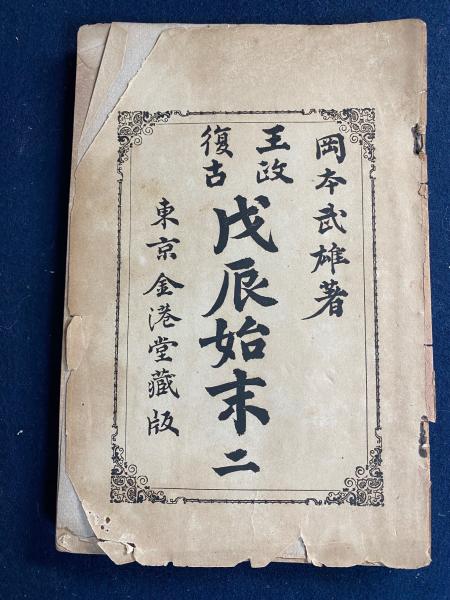 岡本武雄著
王政
復古
戊辰始末 二
東京金港堂藏版